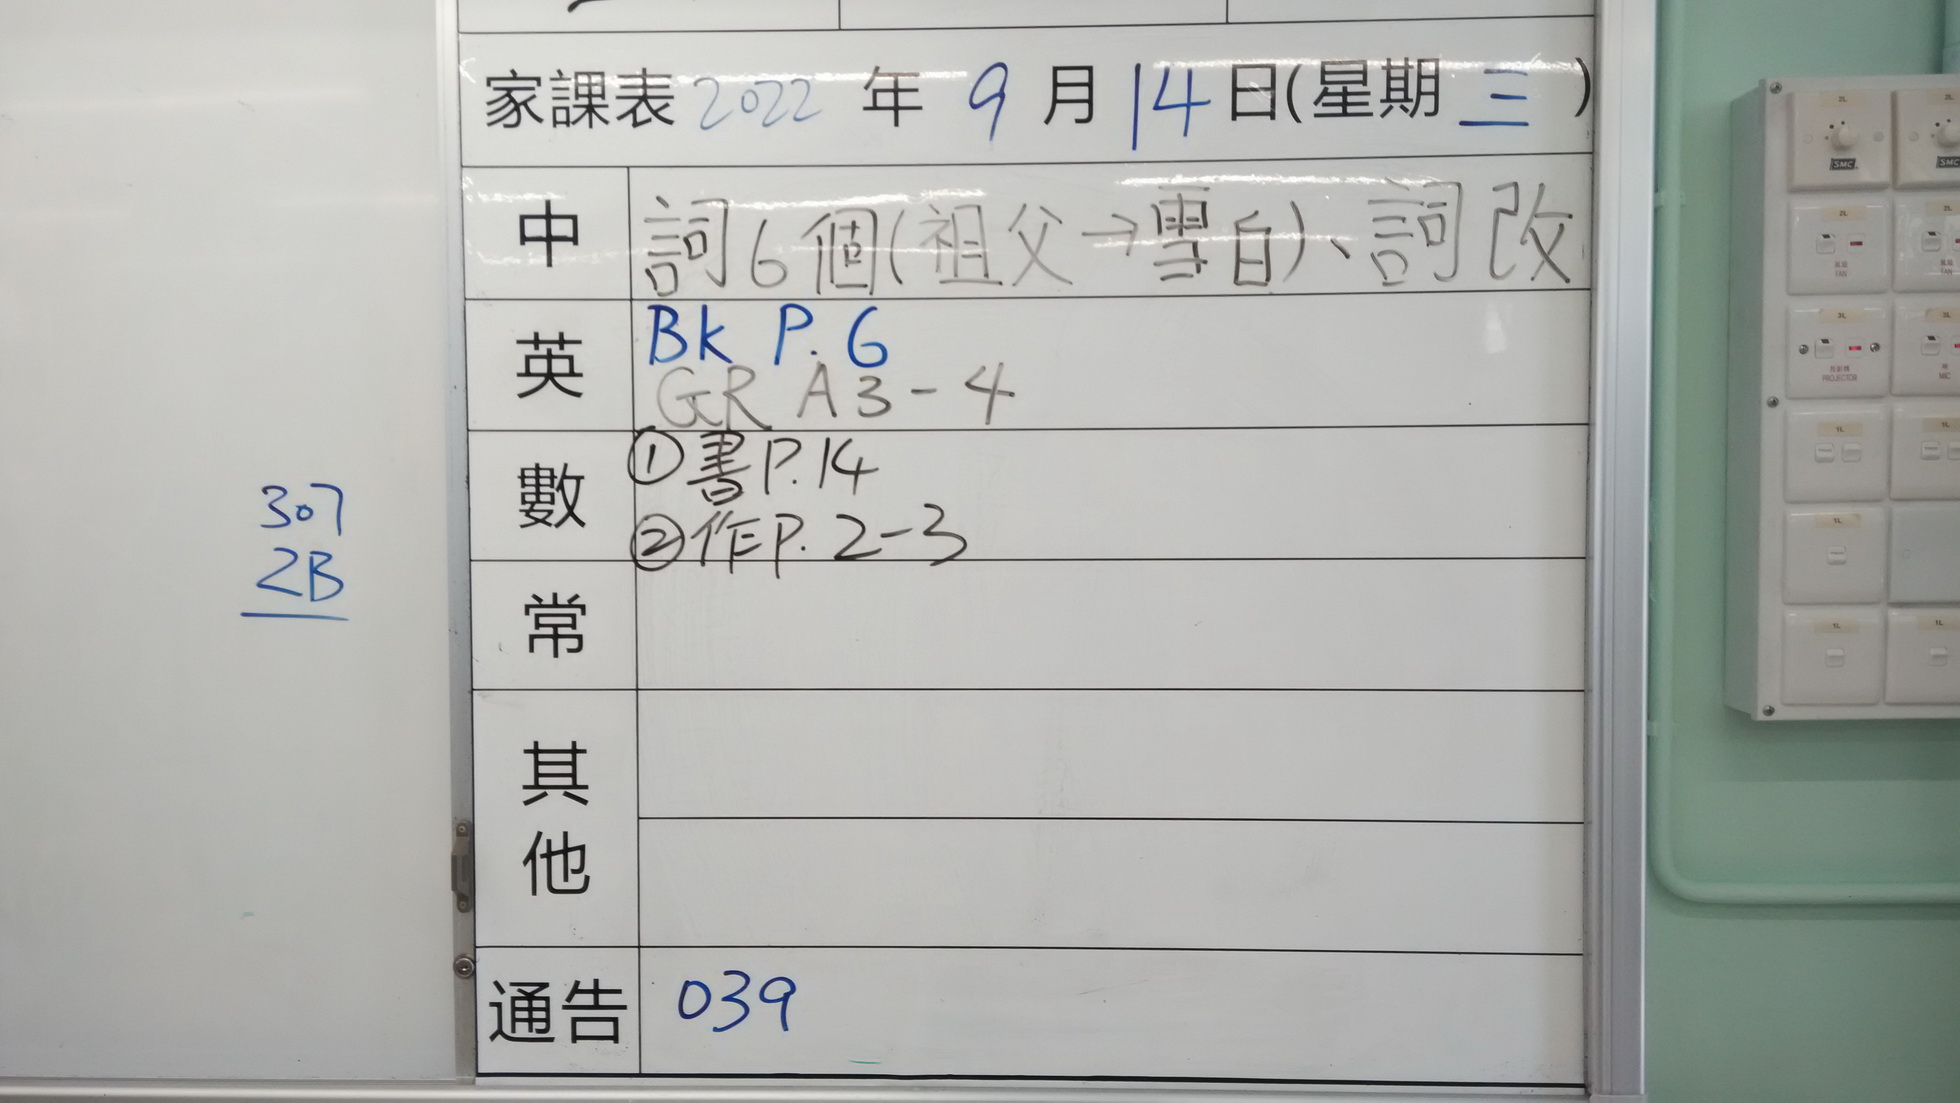 家課表 2022 年 9 月 14 日(星期 三 )
中 詞6個(祖父→雪白)、詞改
英 Bk P. 6
GR A3-4
數 ①書P.14
②作P. 2-3
常
其他
通告 039
307
2B
SMC
SMC
2L
2L
2L
2L
風扇
FAN
FAN
3L
3L
投影機
PROJECTOR
MIC
1L
1L
1L
1L
1L